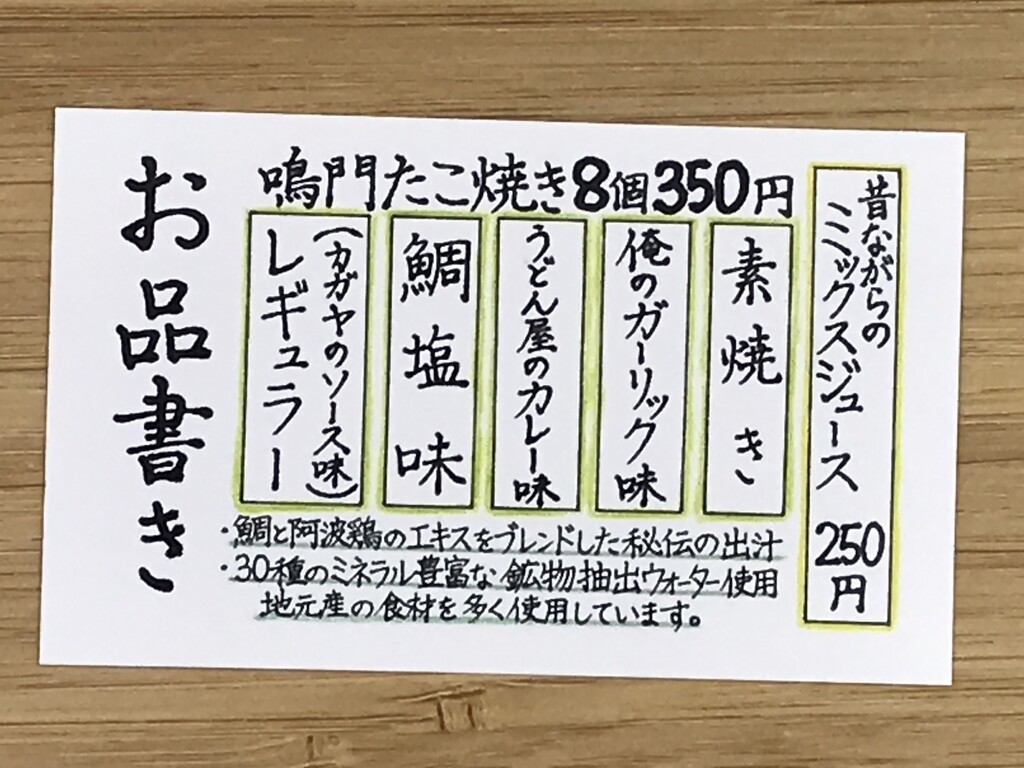 お品書き
鳴門たこ焼き8個350円
レギュラー
(カガヤのソース味)
鯛塩味
うどん屋のカレー味
俺のガーリック味
素焼き
昔ながらの
ミックスジュース
250円
・鯛と阿波鶏のエキスをブレンドした秘伝の出汁
・30種のミネラル豊富な鉱物抽出ウォーター使用
地元産の食材を多く使用しています。